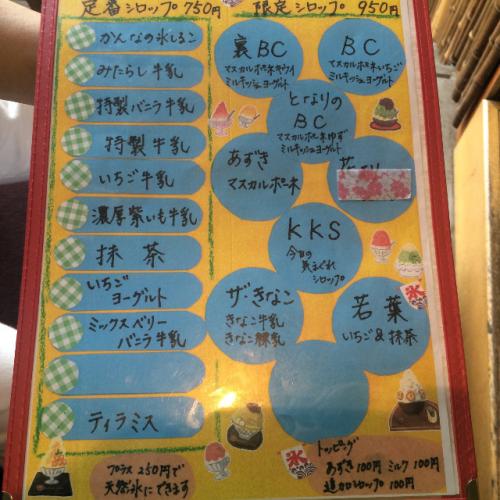 定番シロップ 750円
かんなの氷しるこ
みたらし牛乳
特製バニラ牛乳
特製牛乳
いちご牛乳
濃厚紫いも牛乳
抹茶
いちご
ヨーグルト
ミックスベリー
バニラ牛乳
ティラミス
プラス250円で
天然氷にできます
限定シロップ 950円
裏BC
マスカルポーネキウイ
ミルキッシュヨーグルト
BC
マスカルポーネいちご
ミルキッシュヨーグルト
となりの
BC
マスカルポーネゆず
ミルキッシュヨーグルト
あずき
マスカルポーネ
KKS
今日の
気まぐれ
シロップ
ザ・きなこ
きなこ牛乳
きなこ練乳
若葉
いちご&抹茶
氷
氷
トッピング
あずき100円 ミルク100円
追加シロップ100円